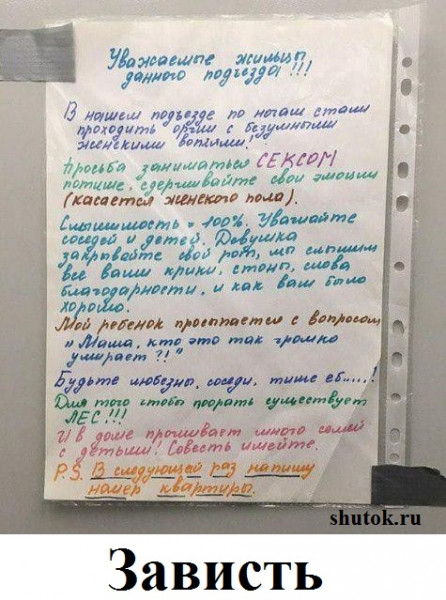 Уважаемые жильцы
данного подъезда!!!
В нашем подъезде по ночам стали
проходить оргии с безумными
женскими воплями!
Просьба заниматься СЕКСОМ
потише, сдерживайте свои эмоции
(касается женского пола).
Слышимость - 100%. Уважайте
соседей и детей. Девушка
закрывайте свой рот, мы слышим
все ваши крики, стоны, слова
благодарности, и как вам было
хорошо.
Мой ребенок просыпается с вопросом
"Мама, кто это так громко
умирает?!"
Будьте любезны, соседи, тише еб.....!
Для того чтобы поорать существует
ЛЕС!!!
И в доме проживает много семей
с детьми! Совесть имейте.
P.S. В следующей раз напишу
номер квартиры.
shutok.ru
Зависть